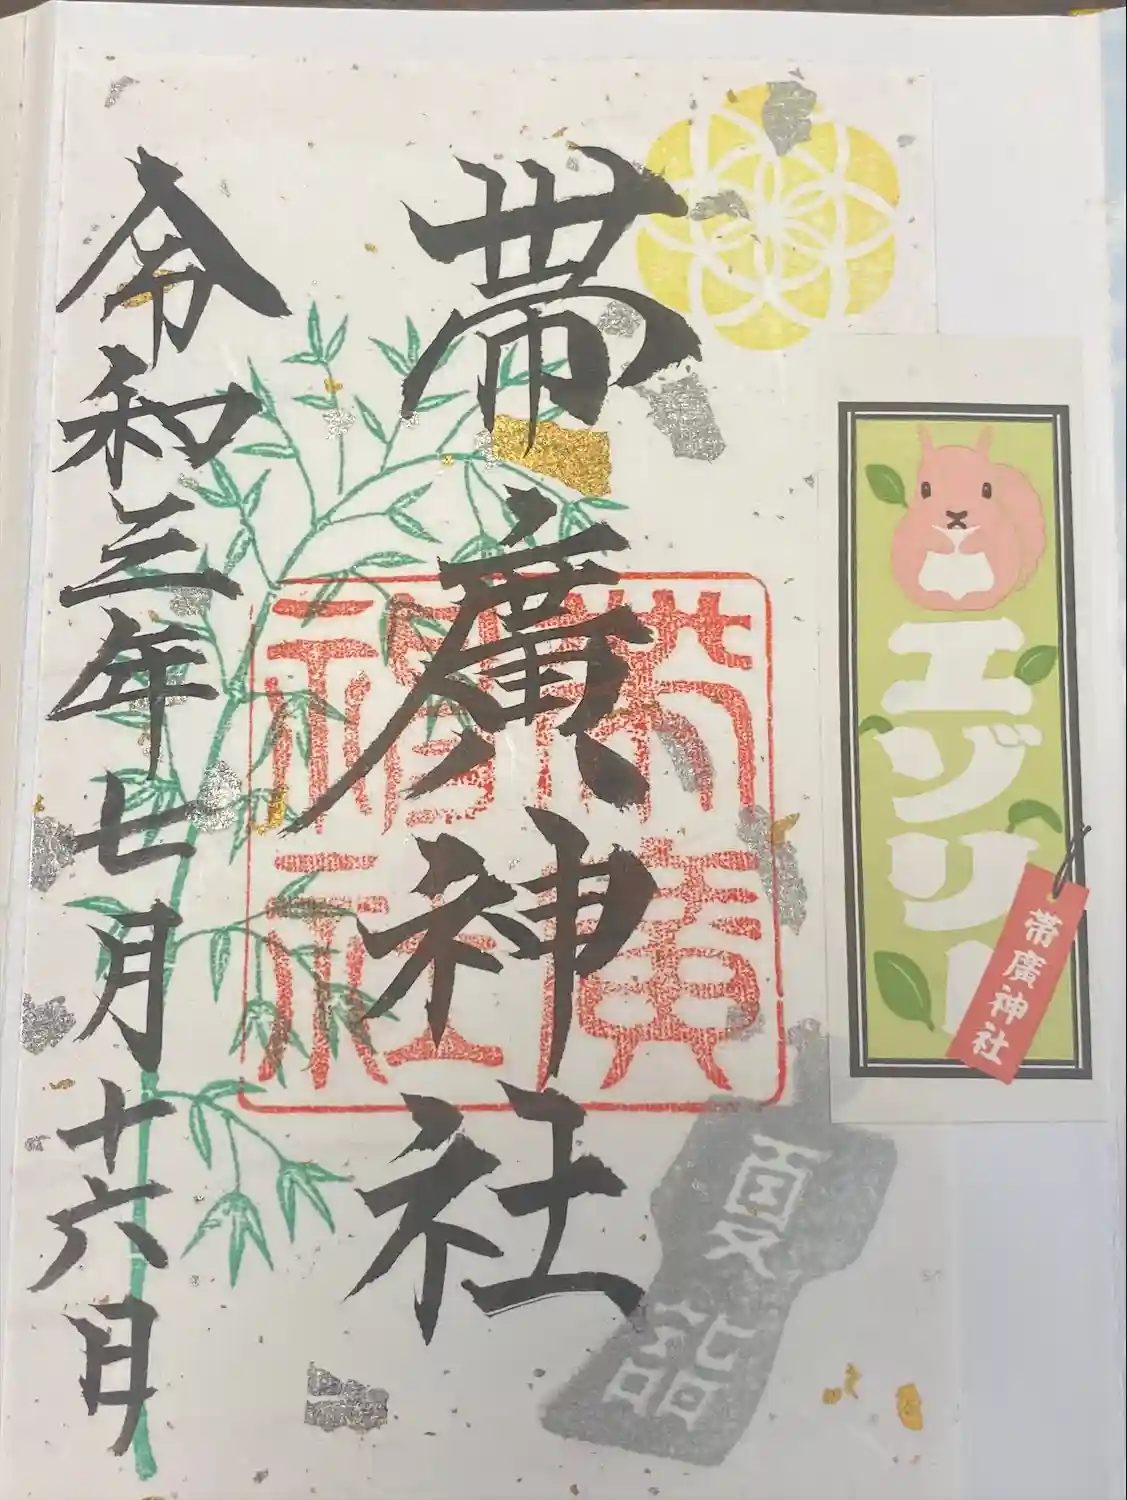 帯廣神社
令和三年七月十六日
帯廣神社
夏詣
エゾリー
帯廣神社